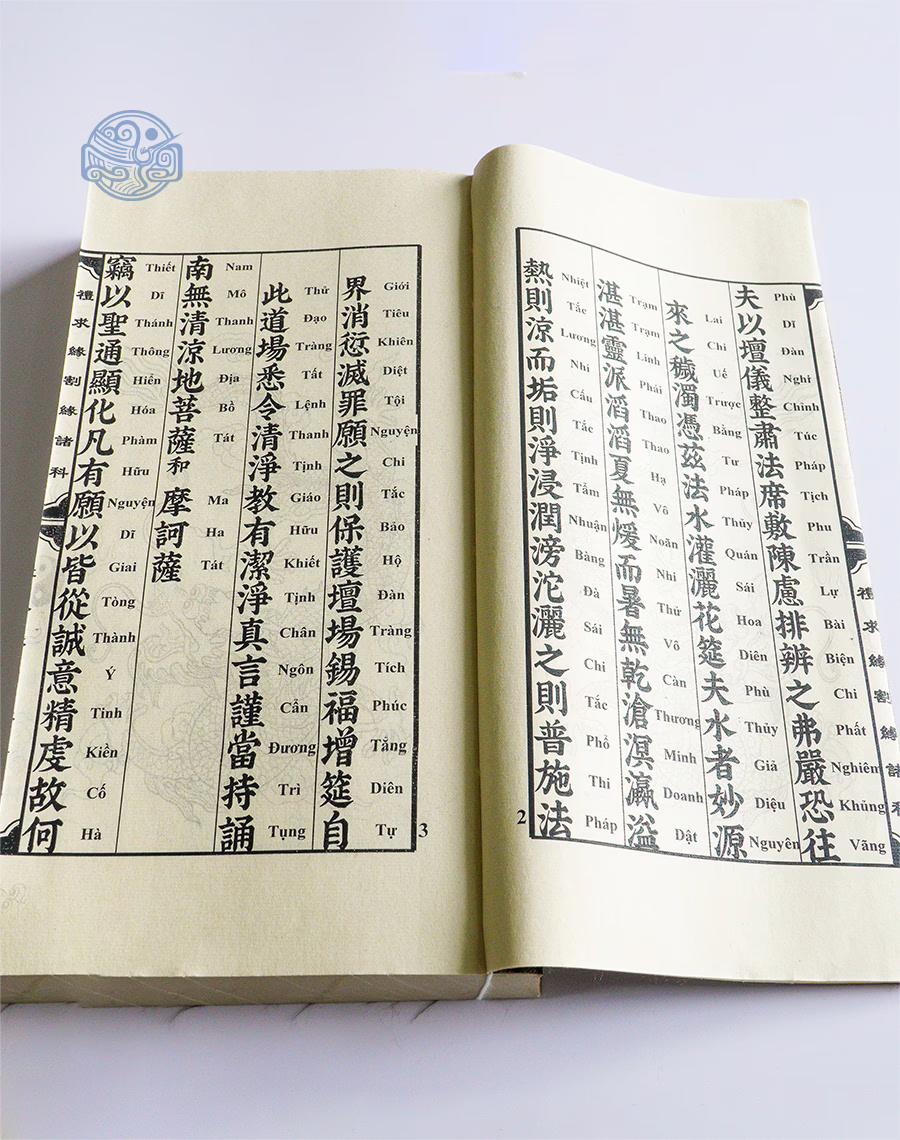 禮求緣割緣諸
夫以壇儀整肅法席敷陳慮排辨之弗嚴恐往
Phù Dĩ Đàn Nghi Chỉnh Túc Pháp Tịch Phu Trần Lự Bài Biện Chi Phất Nghiêm Khủng Vãng
來之穢濁憑茲法水灌灑花筵夫水者妙源
Lai Chi Uế Trược Bằng Tư Pháp Thủy Quán Sái Hoa Diên Phù Thủy Giả Diệu Nguyên
湛湛靈派滔滔夏無煖而暑無乾滄溟瀛溢
Trạm Trạm Linh Phái Thao Thao Hạ Vô Noãn Nhi Thử Vô Càn Thương Minh Doanh Dật
熱則涼而垢則淨浸潤滂沱灑之則普施法
Nhiệt Tắc Lương Nhi Cấu Tắc Tịnh Tẩm Nhuận Bàng Đà Sái Chi Tắc Phổ Thi Pháp
2
界消愆滅罪願之則保護壇場錫福增筵自
Giới Tiêu Khiên Diệt Tội Nguyện Chi Tắc Bảo Hộ Đàn Tràng Tích Phúc Tăng Diên Tự
3
此道場悉令清淨教有潔淨真言謹當持誦
Thử Đạo Tràng Tất Lệnh Thanh Tịnh Giáo Hữu Khiết Tịnh Chân Ngôn Cẩn Đương Trì Tụng
南無清涼地菩薩和摩訶薩
Nam Mô Thanh Lương Địa Bồ Tát Ma Ha Tát
竊以聖通顯化凡有願以皆從誠意精虔故何
Thiết Dĩ Thánh Thông Hiển Hóa Phàm Hữu Nguyện Dĩ Giai Tòng Thành Ý Tinh Kiền Cố Hà
禮求緣割緣諸科